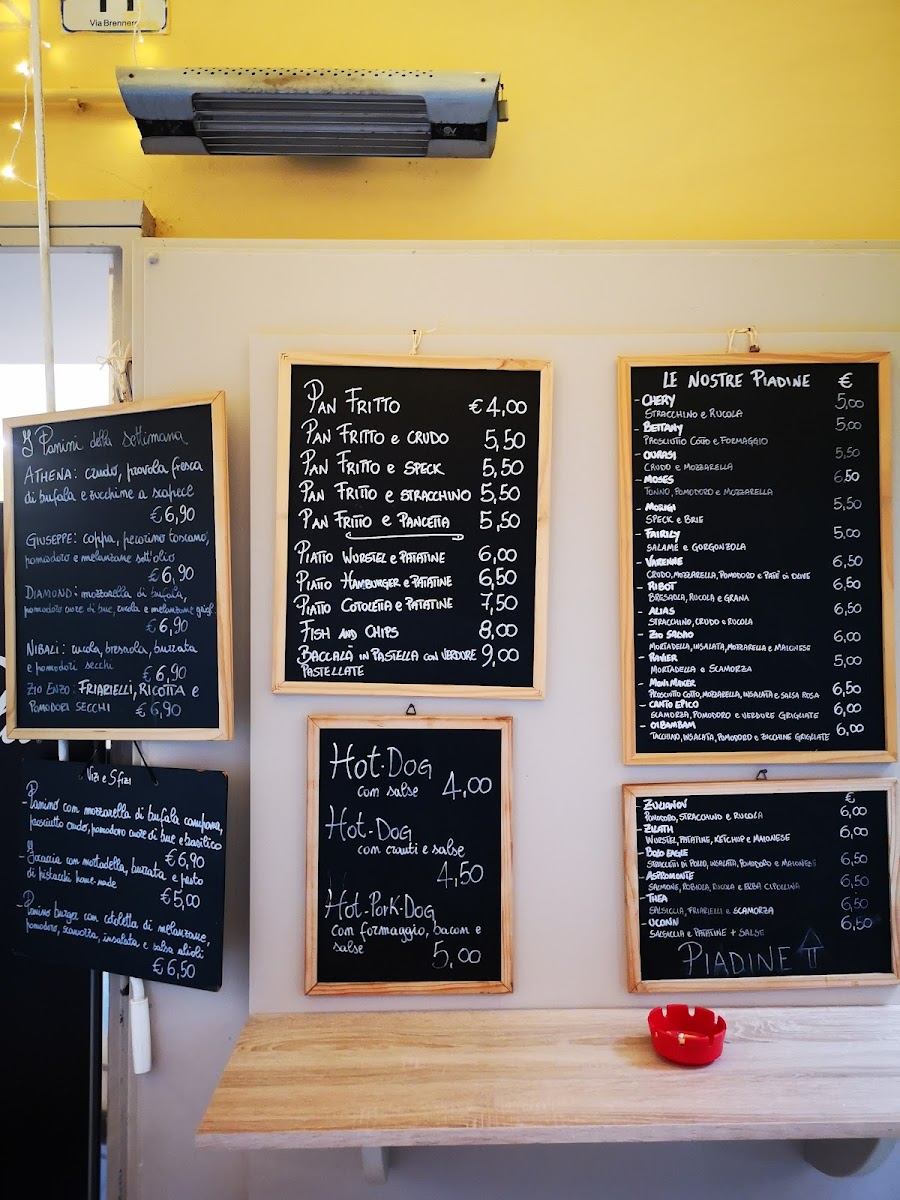 Via Brenner
I Panini della settimana
ATHENA: crudo, provola fresca
di bufala e zucchine a scapece
€ 6,90
GIUSEPPE: coppa, pecorino toscano,
pomodoro e melanzane sott'olio
€ 6,90
DIAMOND: mozzarella di bufala,
pomodoro cuore di bue, rucola e melanzane grigl.
€ 6,90
NIBALI: rucola, bresaola, burrata
e pomodori secchi
€ 6,90
ZIO ENZO: FRIARIELLI, RICOTTA e
POMODORI SECCHI € 6,90
VIZI e SFIZI
- Panino con mozzarella di bufala campana,
prosciutto crudo, pomodoro cuore di bue e basilico
€ 6,90
- Focaccia con mortadella, burrata e pesto
di pistacchi home-made
€ 5,00
- Panino burger con cotoletta di melanzane,
pomodoro, scamorza, insalata e salsa alioli
€ 6,50
PAN FRITTO € 4,00
PAN FRITTO e CRUDO 5,50
PAN FRITTO e SPECK 5,50
PAN FRITTO e STRACCHINO 5,50
PAN FRITTO e PANCETTA 5,50
PIATTO WURSTEL e PATATINE 6,00
PIATTO HAMBURGER e PATATINE 6,50
PIATTO COTOLETTA e PATATINE 7,50
FISH AND CHIPS 8,00
BACCALÀ IN PASTELLA CON VERDURE 9,00
PASTELLATE
HOT-DOG
con salse 4,00
HOT-DOG
con crauti e salse
4,50
HOT-PORK-DOG
con formaggio, bacon e
salse
5,00
LE NOSTRE PIADINE €
- CHERY 5,00
STRACCHINO e RUCOLA
- BETTANY 5,00
PROSCIUTTO COTTO e FORMAGGIO
- OURASI 5,50
CRUDO e MOZZARELLA
- MOSES 6,50
TONNO, POMODORO e MOZZARELLA
- MORIGI 5,50
SPECK e BRIE
- FAIRILY 5,00
SALAME e GORGONZOLA
- VARENNE 6,50
CRUDO, MOZZARELLA, POMODORO e PATE' DI OLIVE
- RIBOT 6,50
BRESAOLA, RUCOLA e GRANA
- ALIAS 6,50
STRACCHINO, CRUDO e RUCOLA
- ZIO SACHO 6,00
MORTADELLA, INSALATA, MOZZARELLA e MAIONESE
- RAVIER 5,00
MORTADELLA e SCAMORZA
- MONI MAKER 6,50
PROSCIUTTO COTTO, MOZZARELLA, INSALATA e SALSA ROSA
- CANTO EPICO 6,00
SCAMORZA, POMODORO e VERDURE GRIGLIATE
- OIBAMBAM 6,00
TACCHINO, INSALATA, POMODORO e ZUCCHINE GRIGLIATE
€
- ZULIANOV 6,00
POMODORO, STRACCHINO e RUCOLA
- ZILATH 6,00
WURSTEL, PATATINE, KETCHUP e MAIONESE
- BOLD EAGLE 6,50
STRACCETTI DI POLLO, INSALATA, POMODORO e MAIONESE
- ASPROMONTE 6,50
SALMONE, ROBIOLA, RUCOLA e ERBA CIPOLLINA
- THEA 6,50
SALSICCIA, FRIARIELLI e SCAMORZA
- UCONN 6,50
SALSICCIA e PATATINE + SALSE
PIADINE